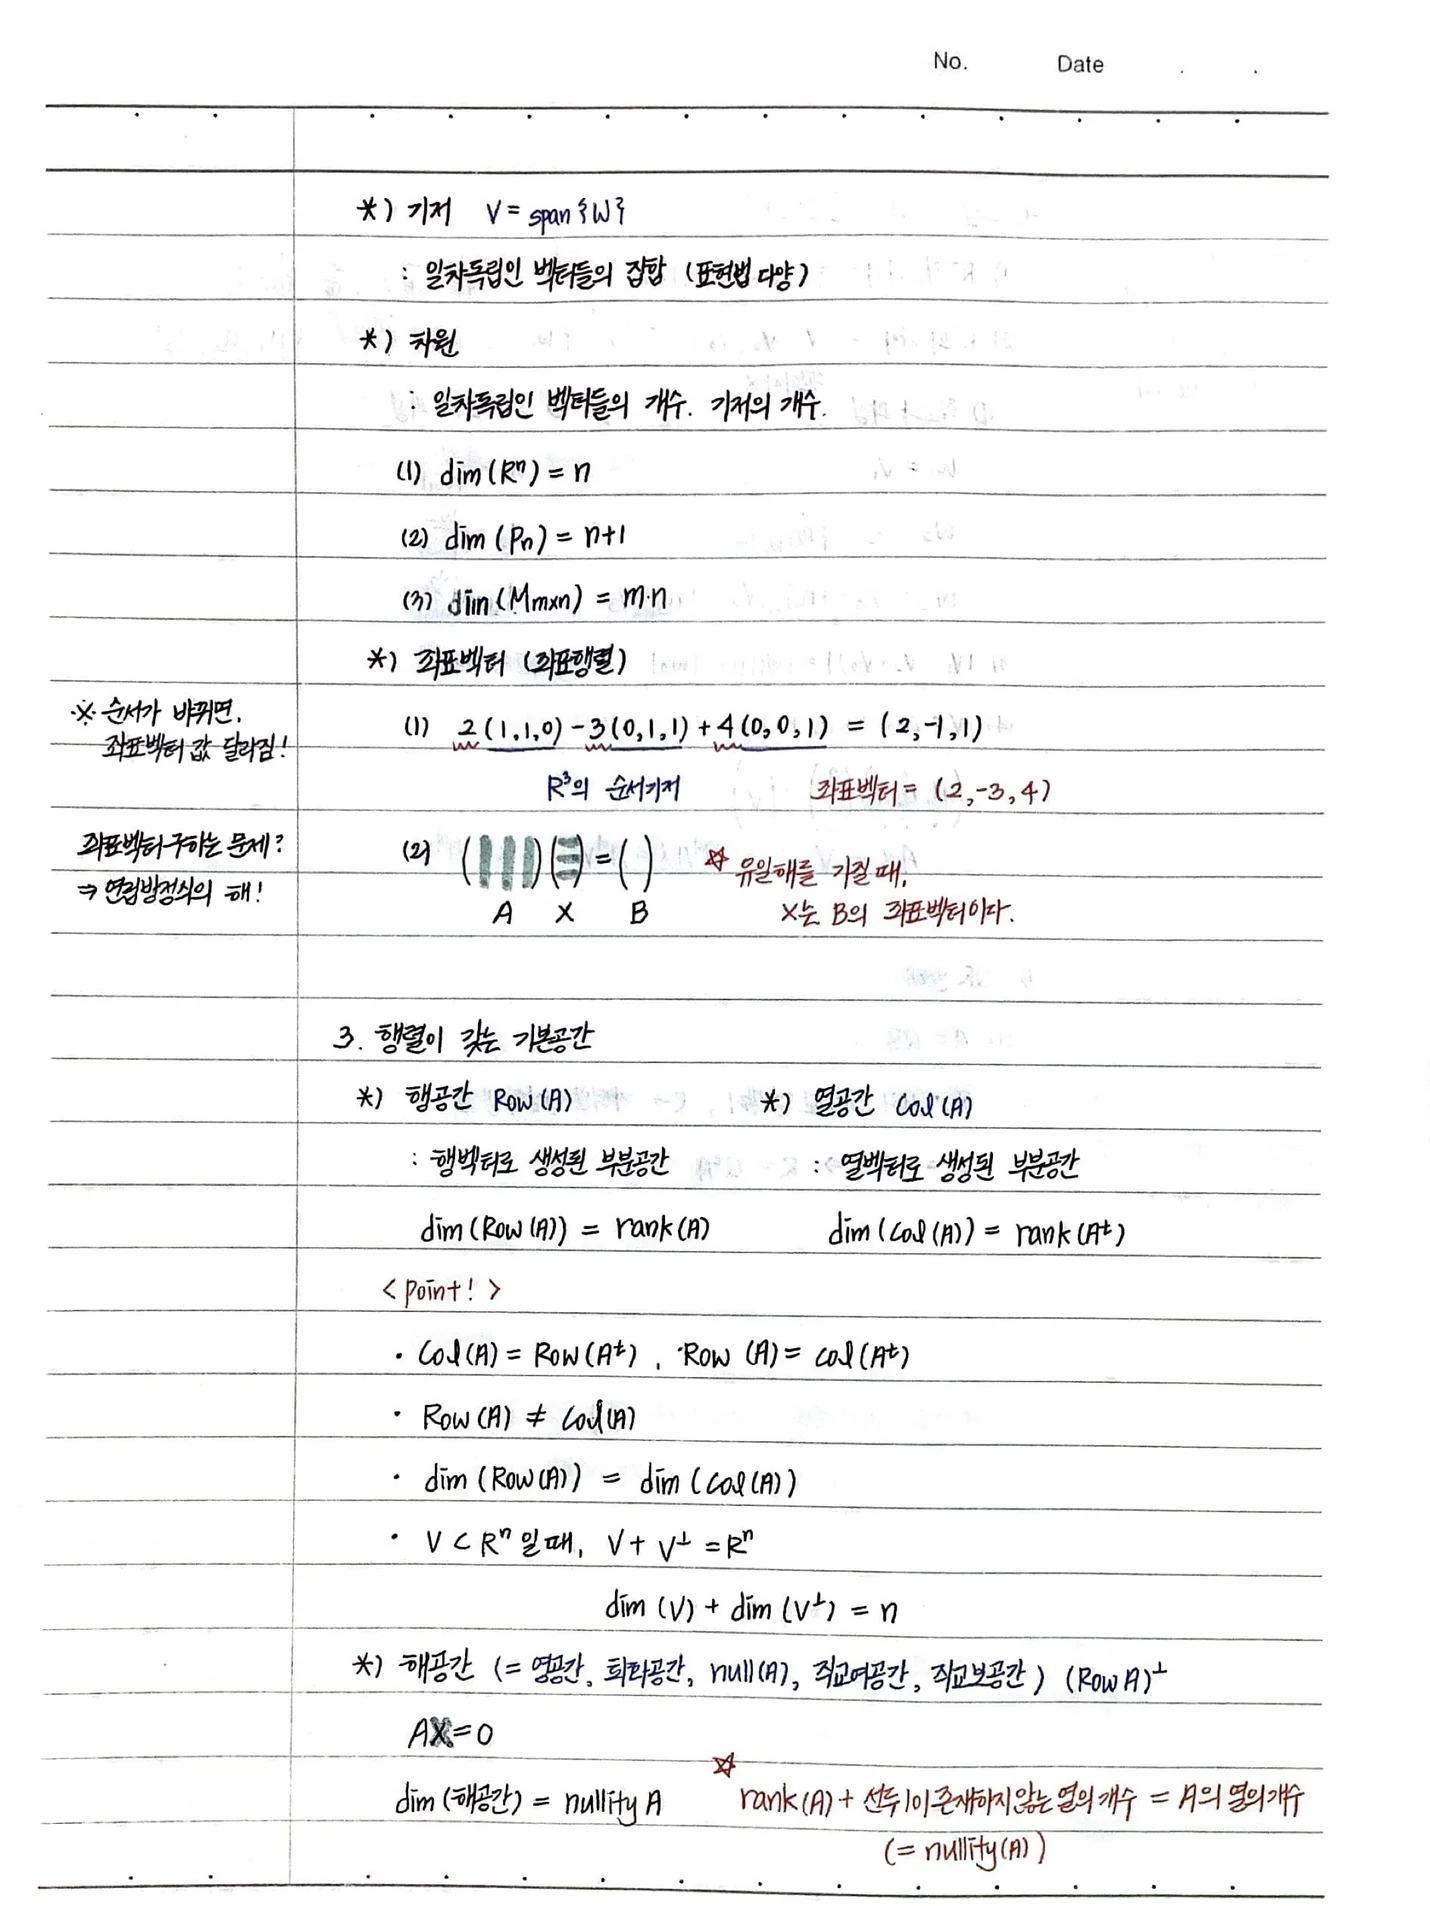 No. Date . .
*) 기저 V = span{W}
: 일차독립인 벡터들의 집합 (표현법 다양)
*) 차원
: 일차독립인 벡터들의 개수. 기저의 개수.
(1) dim(Rⁿ) = n
(2) dim(Pn) = n+1
(3) dim(Mm×n) = m·n
*) 좌표벡터 (좌표행렬)
※ 순서가 바뀌면,
좌표벡터 값 달라짐!
(1) 2(1,1,0) - 3(0,1,1) + 4(0,0,1) = (2,-1,1)
R³의 순서기저 좌표벡터 = (2,-3,4)
좌표벡터 구하는 문제?
⇒ 연립방정식의 해!
(2) ( ) ( ) = ( ) ☆ 유일해를 가질 때,
A X B X는 B의 좌표벡터이다.
3. 행렬이 갖는 기본공간
*) 행공간 Row(A) *) 열공간 Col(A)
: 행벡터로 생성된 부분공간 : 열벡터로 생성된 부분공간
dim(Row(A)) = rank(A) dim(Col(A)) = rank(Aᵗ)
<point!>
· Col(A) = Row(Aᵗ), ·Row(A) = col(Aᵗ)
· Row(A) ≠ Col(A)
· dim(Row(A)) = dim(Col(A))
· V ⊂ Rⁿ일 때, V + V⊥ = Rⁿ
dim(V) + dim(V⊥) = n
*) 해공간 (= 영공간, 퇴화공간, null(A), 직교여공간, 직교보공간) (Row A)⊥
AX = 0
dim(해공간) = nullity A ☆ rank(A) + 선두1이 존재하지 않는 열의 개수 = A의 열의 개수
(= nullity(A))